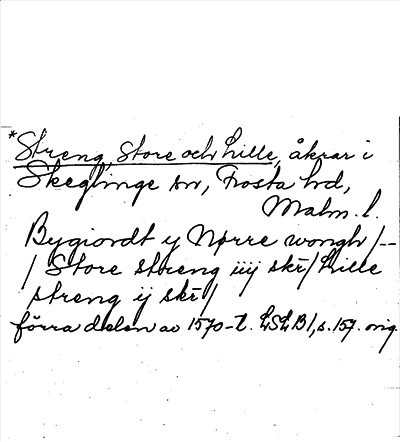 *Streng, Store och Lille, åkrar i
Skeglinge sn, Frosta hd,
Malm. l.
Bygiordt y Nørre wongh /--
/ Store streng iiij skr/ Lille
streng ij skr/
förra delen av 1570-t. LSLB1, s. 157. orig.